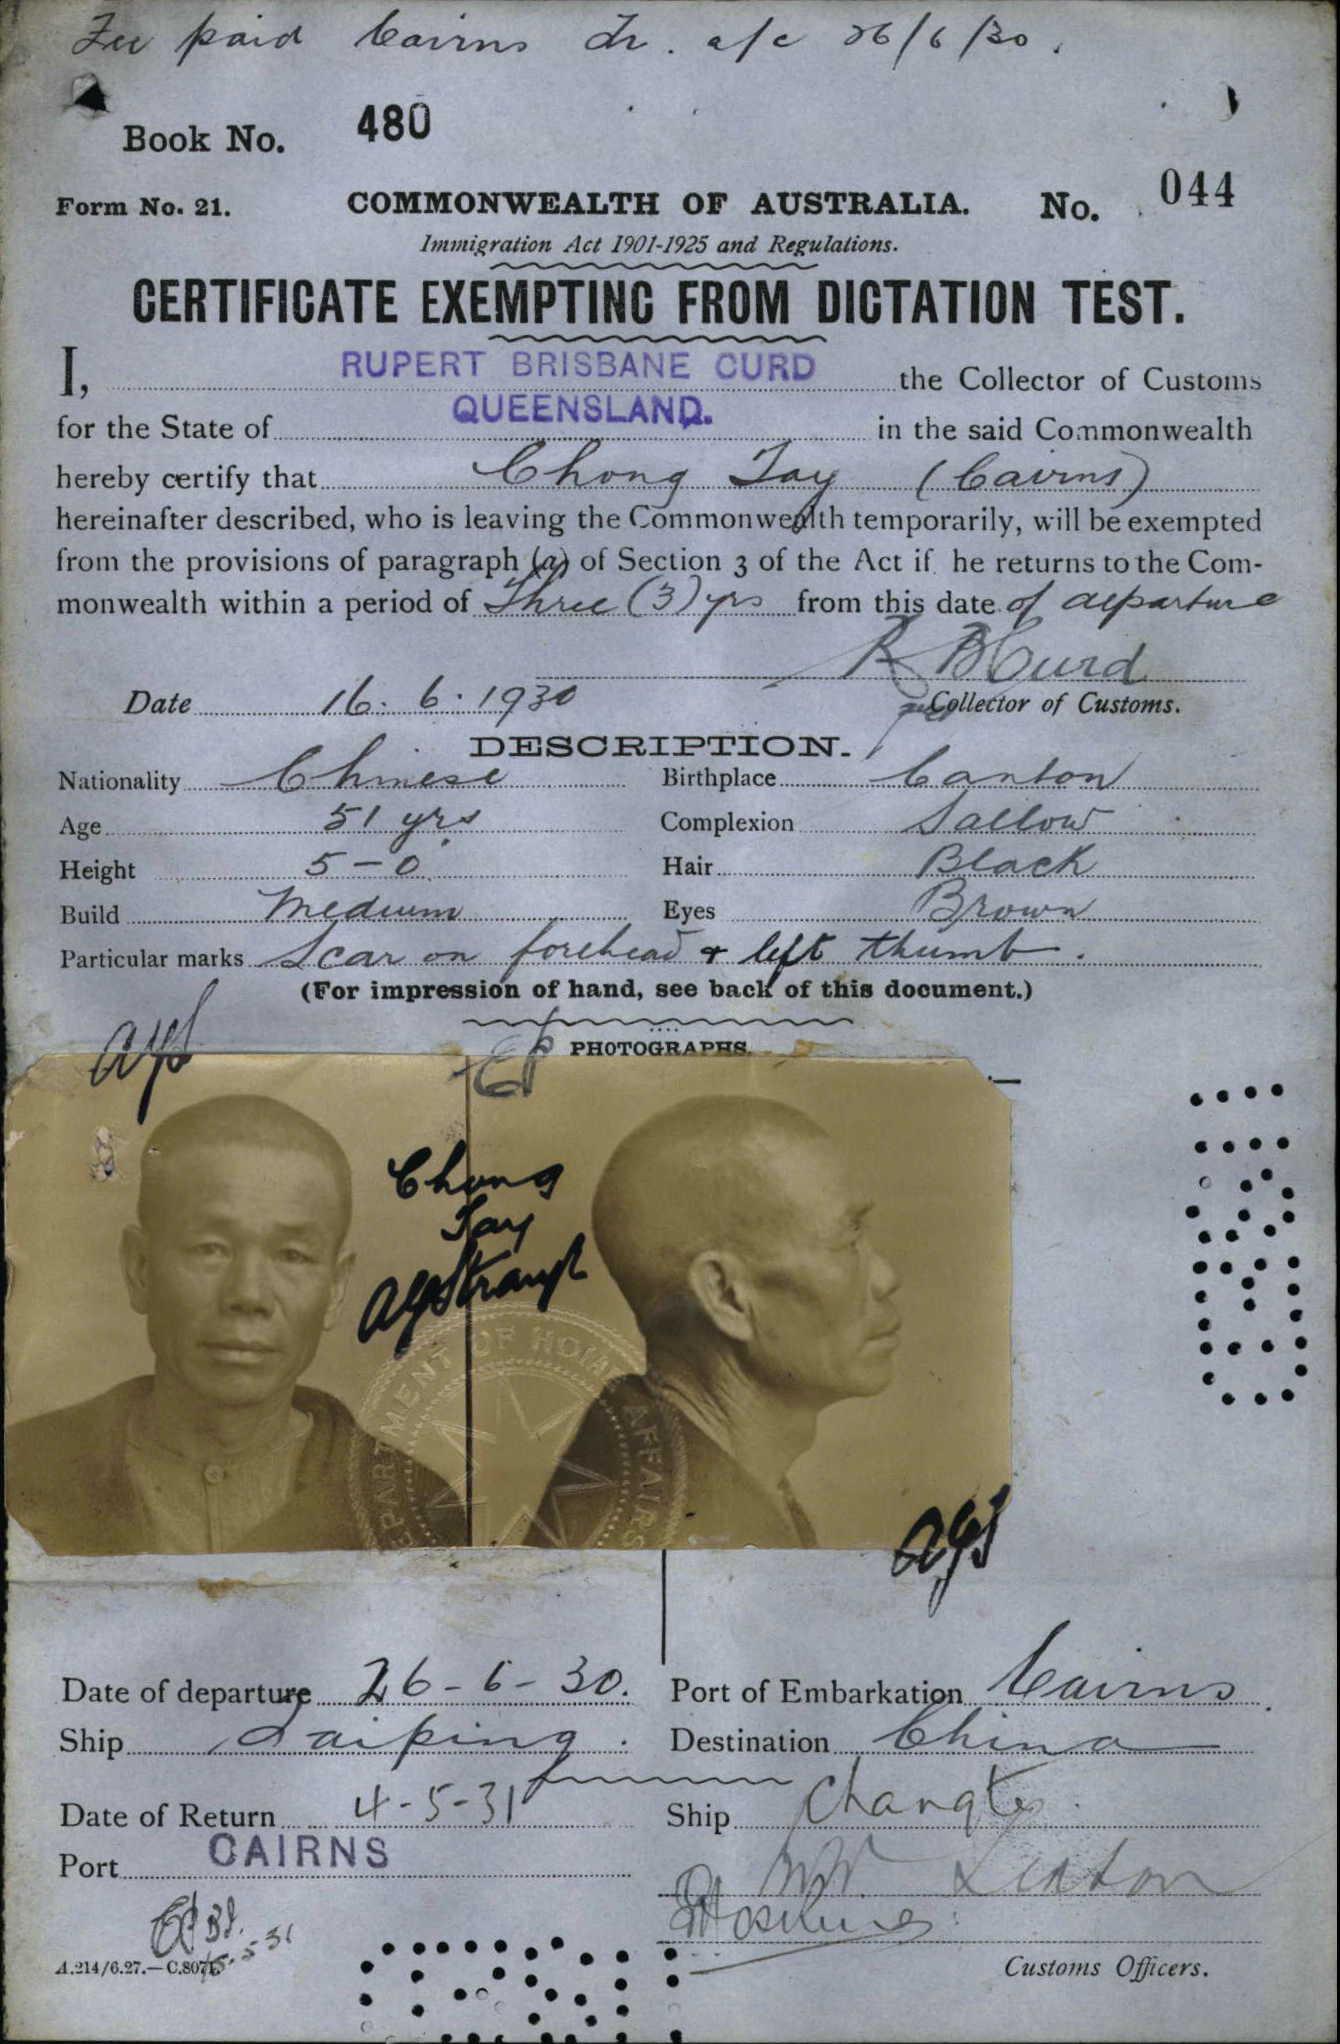 Fee paid Cairns Tr. a/c 26/6/30.
Book No. 480
Form No. 21. COMMONWEALTH OF AUSTRALIA. No. 044
Immigration Act 1901-1925 and Regulations.
CERTIFICATE EXEMPTING FROM DICTATION TEST.
I, RUPERT BRISBANE CURD the Collector of Customs
for the State of QUEENSLAND. in the said Commonwealth
hereby certify that Chong Tay (Cairns)
hereinafter described, who is leaving the Commonwealth temporarily, will be exempted
from the provisions of paragraph (a) of Section 3 of the Act if he returns to the Com-
monwealth within a period of Three (3) yrs from this date of departure
R B Curd
Date 16. 6. 1930 Collector of Customs.
DESCRIPTION.
Nationality Chinese Birthplace Canton
Age 51 yrs Complexion Sallow
Height 5-0 Hair Black
Build Medium Eyes Brown
Particular marks Scar on forehead & left thumb.
(For impression of hand, see back of this document.)
PHOTOGRAPHS.
ags
Chong
Tay
DEPARTMENT OF HOME AFFAIRS
ags
Date of departure 26-6-30. Port of Embarkation Cairns
Ship Taiping. Destination China
Date of Return 4-5-31 Ship Changte
Port CAIRNS
Linton
A.214/6.27.—C.8071. Customs Officers.